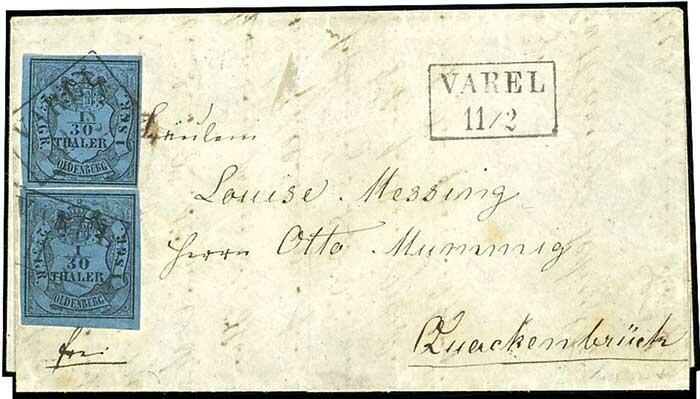 VAREL
11/2
1
30
THALER
OLDENBURG
1 SGR.
1
30
THALER
OLDENBURG
1 SGR.
Fräulein
Louise Messing
Herrn Otto Mummig
frei
Quackenbrück